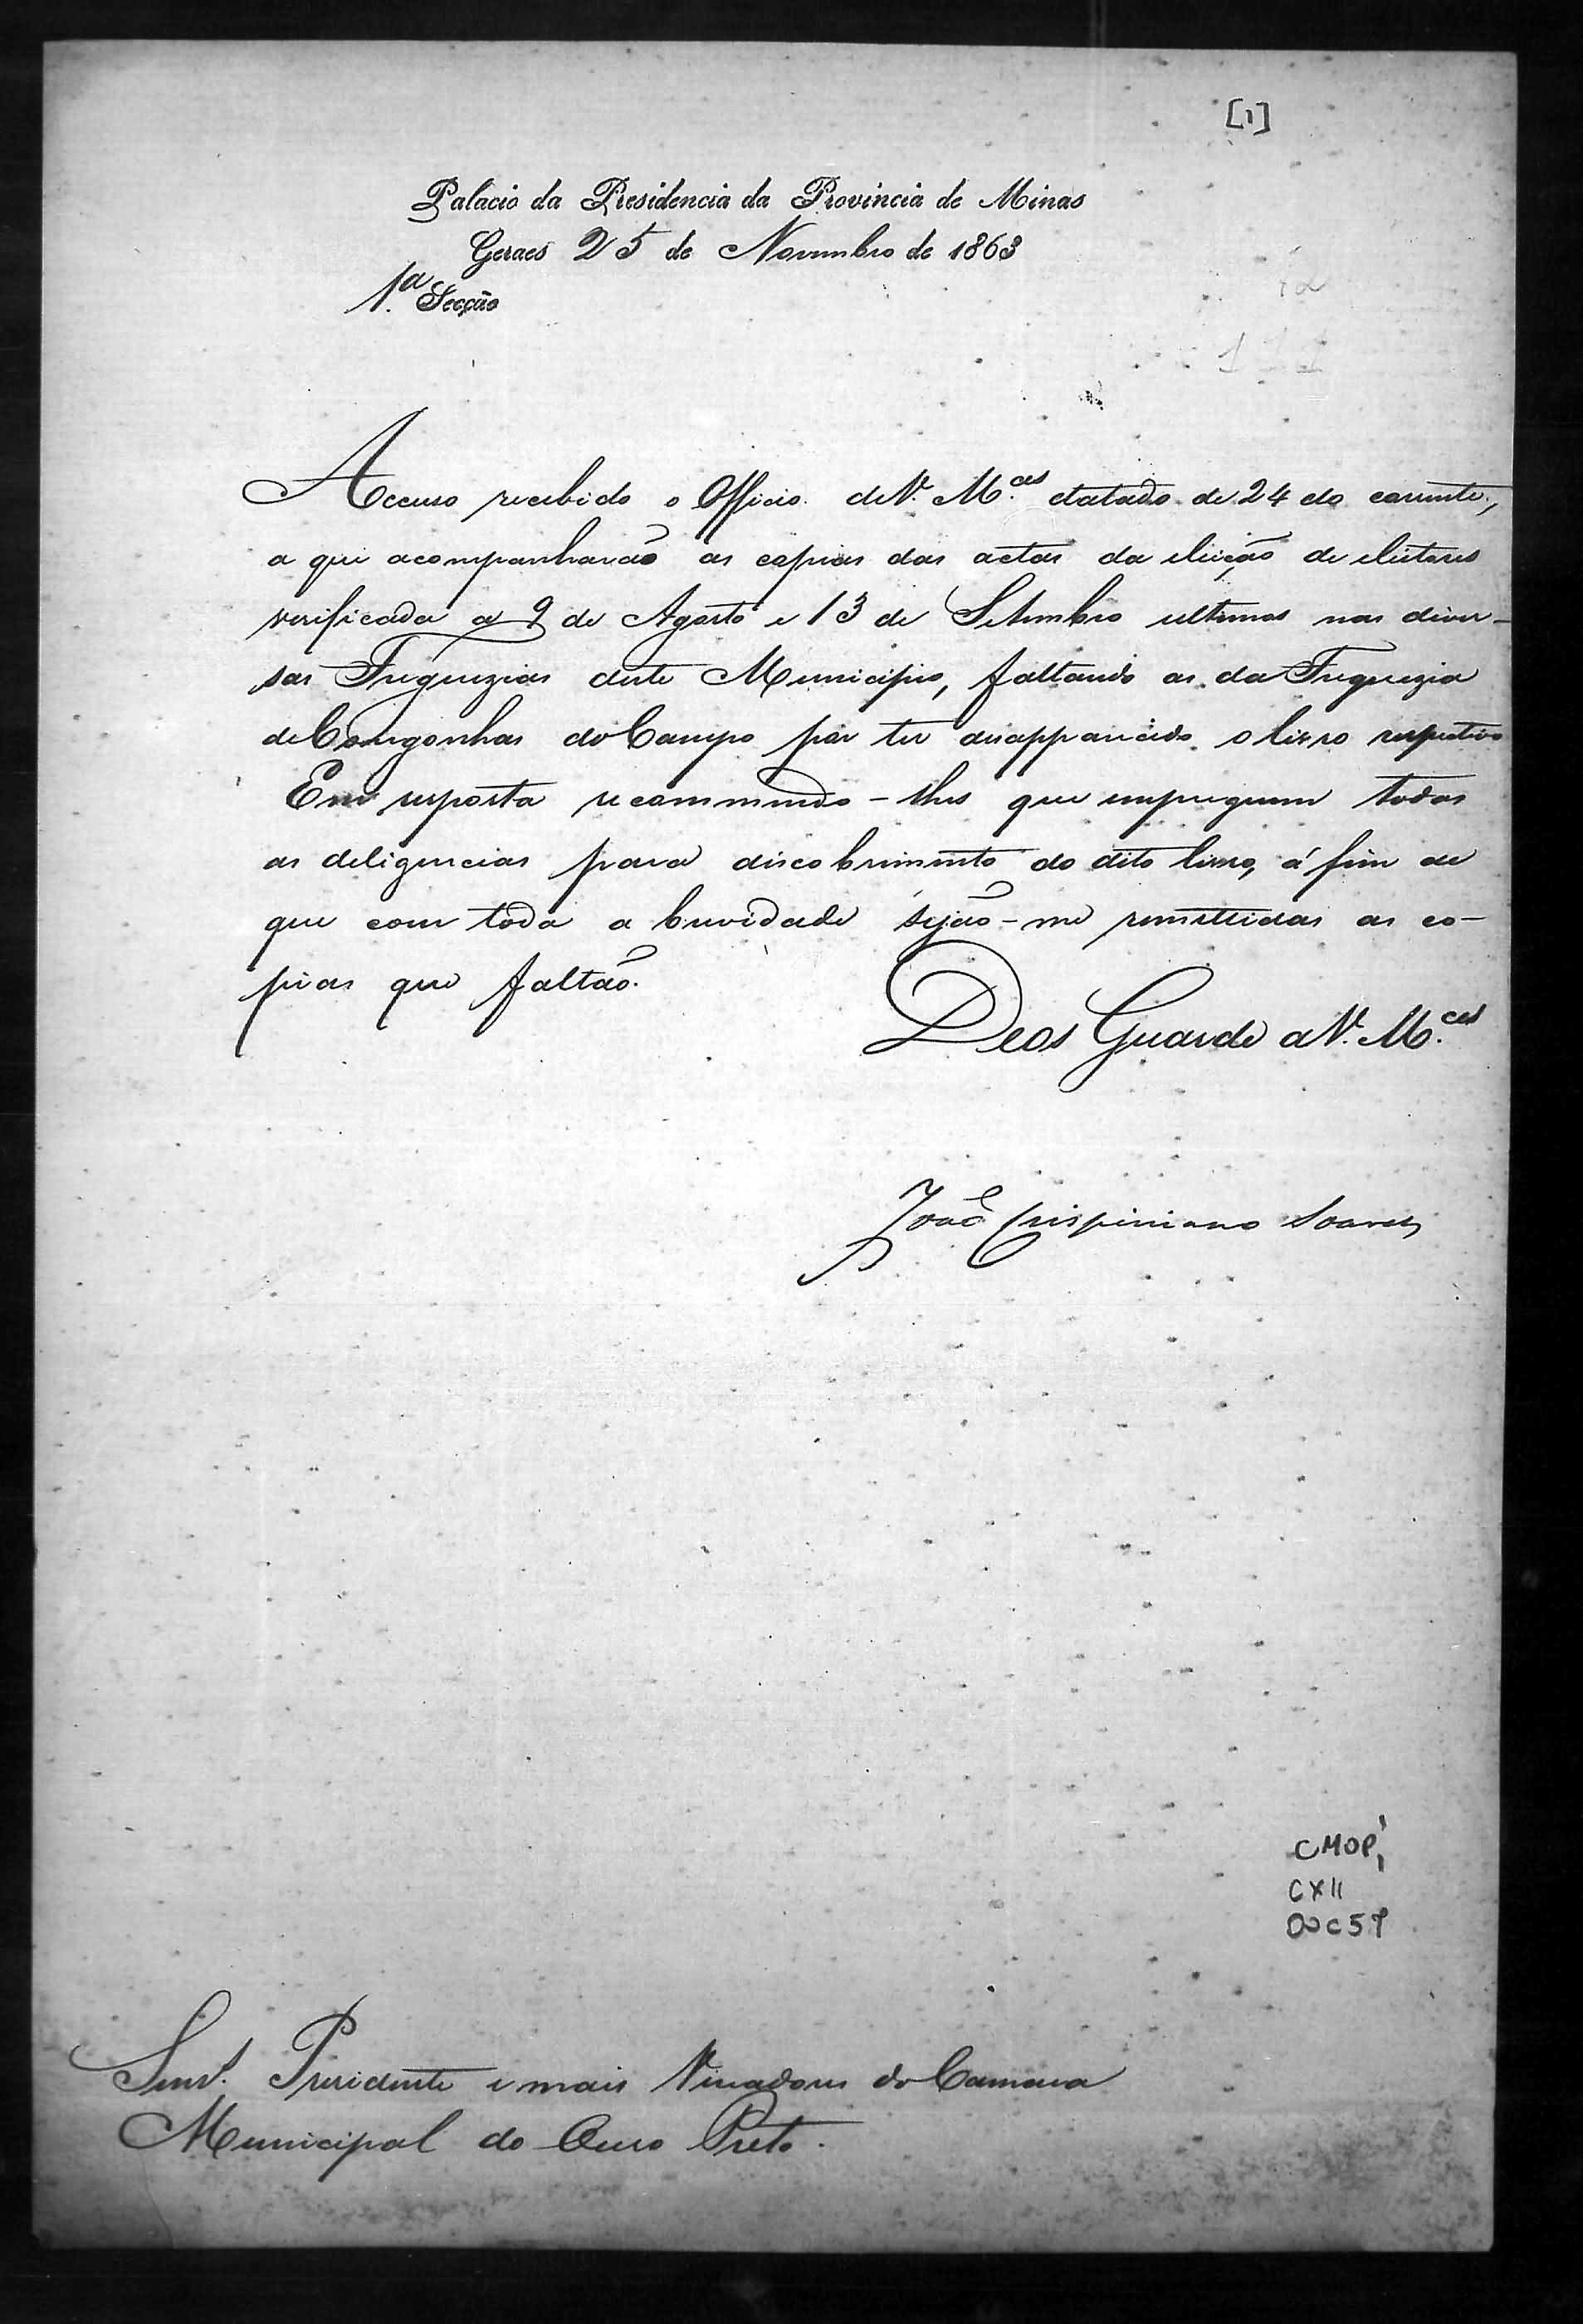 [1]
Palacio da Presidencia da Provincia de Minas
Geraes 25 de Novembro de 1863
1.ª Secção
Accuso recebido o Officio de V. M.ces datado de 24 do corrente,
a que acompanharão as copias das actas da eleição de eleitores
verificada a 9 de Agosto e 13 de Setembro ultimos nas diver-
sas Freguezias deste Municipio, faltando as da Freguezia
de Congonhas do Campo por ter desapparecido o livro respectivo
Em resposta recommendo-lhes que empreguem todas
as deligencias para descobrimento do dito livro, á fim de
que com toda a brevidade sejão-me remettidas as co-
pias que faltão.
Deos Guarde a V. M.ces
João Crispiniano Soares
CMOP
CX11
DOC 59
Snrs. Presidente e mais Vereadores da Camara
Municipal do Ouro Preto.